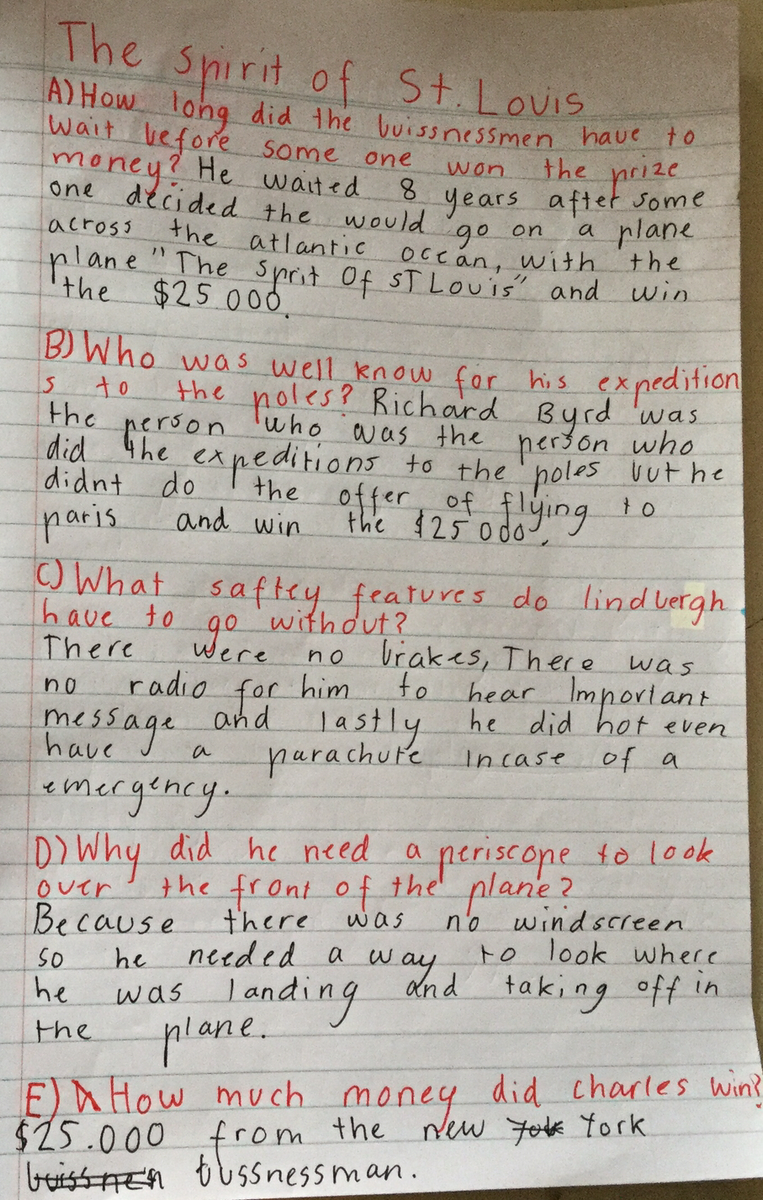 The Spirit of St. Louis
A) How long did the buissnessmen have to
wait before some one won the prize
money? He waited 8 years after some
one decided the would go on a plane
across the atlantic occan, with the
plane "The Sprit Of ST Louis" and win
the $25 000.
B) Who was well know for his expedition
s to the poles? Richard Byrd was
the person who was the person who
did the expeditions to the poles but he
didnt do the offer of flying to
paris and win the $25 000.
C) What saftey features do lindbergh
have to go without?
There were no brakes, There was
no radio for him to hear Important
message and lastly he did not even
have a parachute incase of a
emergency.
D) Why did he need a periscope to look
over the front of the plane?
Because there was no windscreen
so he needed a way to look where
he was landing and taking off in
the plane.
E) How much money did charles win?
$25.000 from the new York
bussnessman.